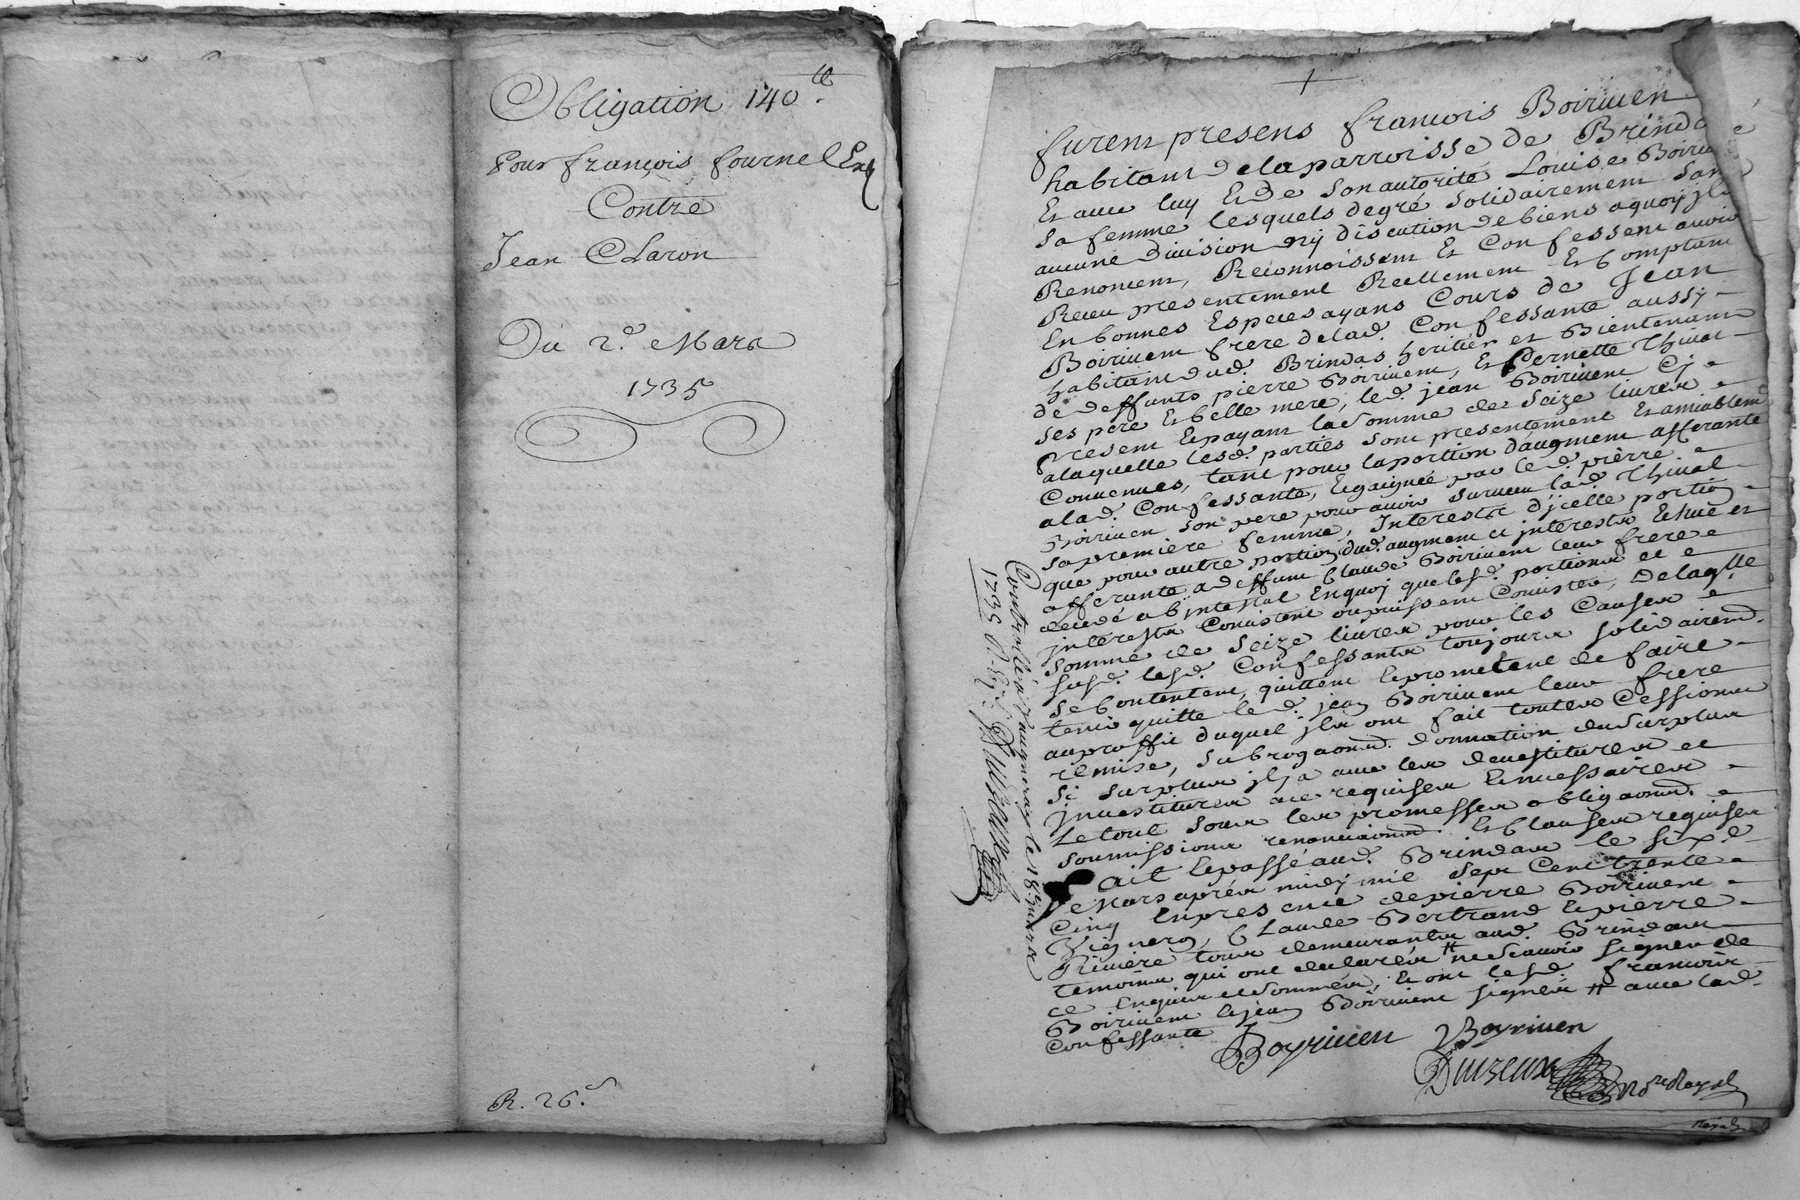 Obligation 140 ₶.
Pour françois fournel
Contre
Jean Claron
Du 2.e Mars
1735
R. 26.s
+
furent presens francois Boiriuen
habitant de la parroisse de Brindas
Et auec luy Et de son autorité Louise Boiriuen
sa femme lesquels de gré solidairement sans
aucune diuision ny discution de biens a quoy jls
Renoncent, Reconnoissent Et Confessent auoir
Receu presentement Reellement Et Comptant
En bonnes Especes ayans Cours de Jean
Boiriuent frere de lad. Confessante aussy
habitant dud. Brindas heritier et Bientenant
de deffunts pierre Boiriuent, Et Pernette Thiual
ses pere Et belle mere, led. jean Boiriuent Cy
Present Et payant la somme de Seize liures
a laquelle lesd. parties sont presentement Et amiablemt
Conuenues, tant pour la portion d'augment afferante
a lad. Confessante, Et gaignée par led. pierre
Boiriuen son pere pour auoir suruecu lad. Thiual
sa premiere femme, Interests d'jcelle portion
que pour autre portion dud. augment et interests Echue et
afferante a deffunt Claude Boiriuent leur frere
decedé ab intestat En quoy que lesd. portions et
interests Consistent ou puissent Consister, De laqlle
somme de Seize liures pour les Causes
susd. lesd. Confessants toujours solidairemt.
se Contentent, quittent Et promettent de faire
tenir quitte led. jean Boiriuent leur frere
au proffit duquel jls ont fait toutes Cessions
remise, subrogaons. donnation du surplus
si surplus jl y a auec les deuestitures et
jnuestitures ace requises Et necessaires
Le tout sous les promesses obligaons.
soumissions renonciaons. Et Clauses requises
Fait Et passé aud. Brindas le six.e
Mars apres midy mil sept Cent trente
Cinq En presence de pierre Boiriuent
Vigneron, Claude Bertrand Et pierre
Riuiere tous demeurants aud. Brindas
temoins qui ont declarés # ne scauoir signer de
ce Enquis et sommés, Et ont lesd. francois
Boiriuent Et jean Boiriuent signés # auec lad.
Confessante
Boyriuen Boyriuen
Duizeux Nore Royal
Controllé a Vaugneray le 18e mars
1735 R.
Royal